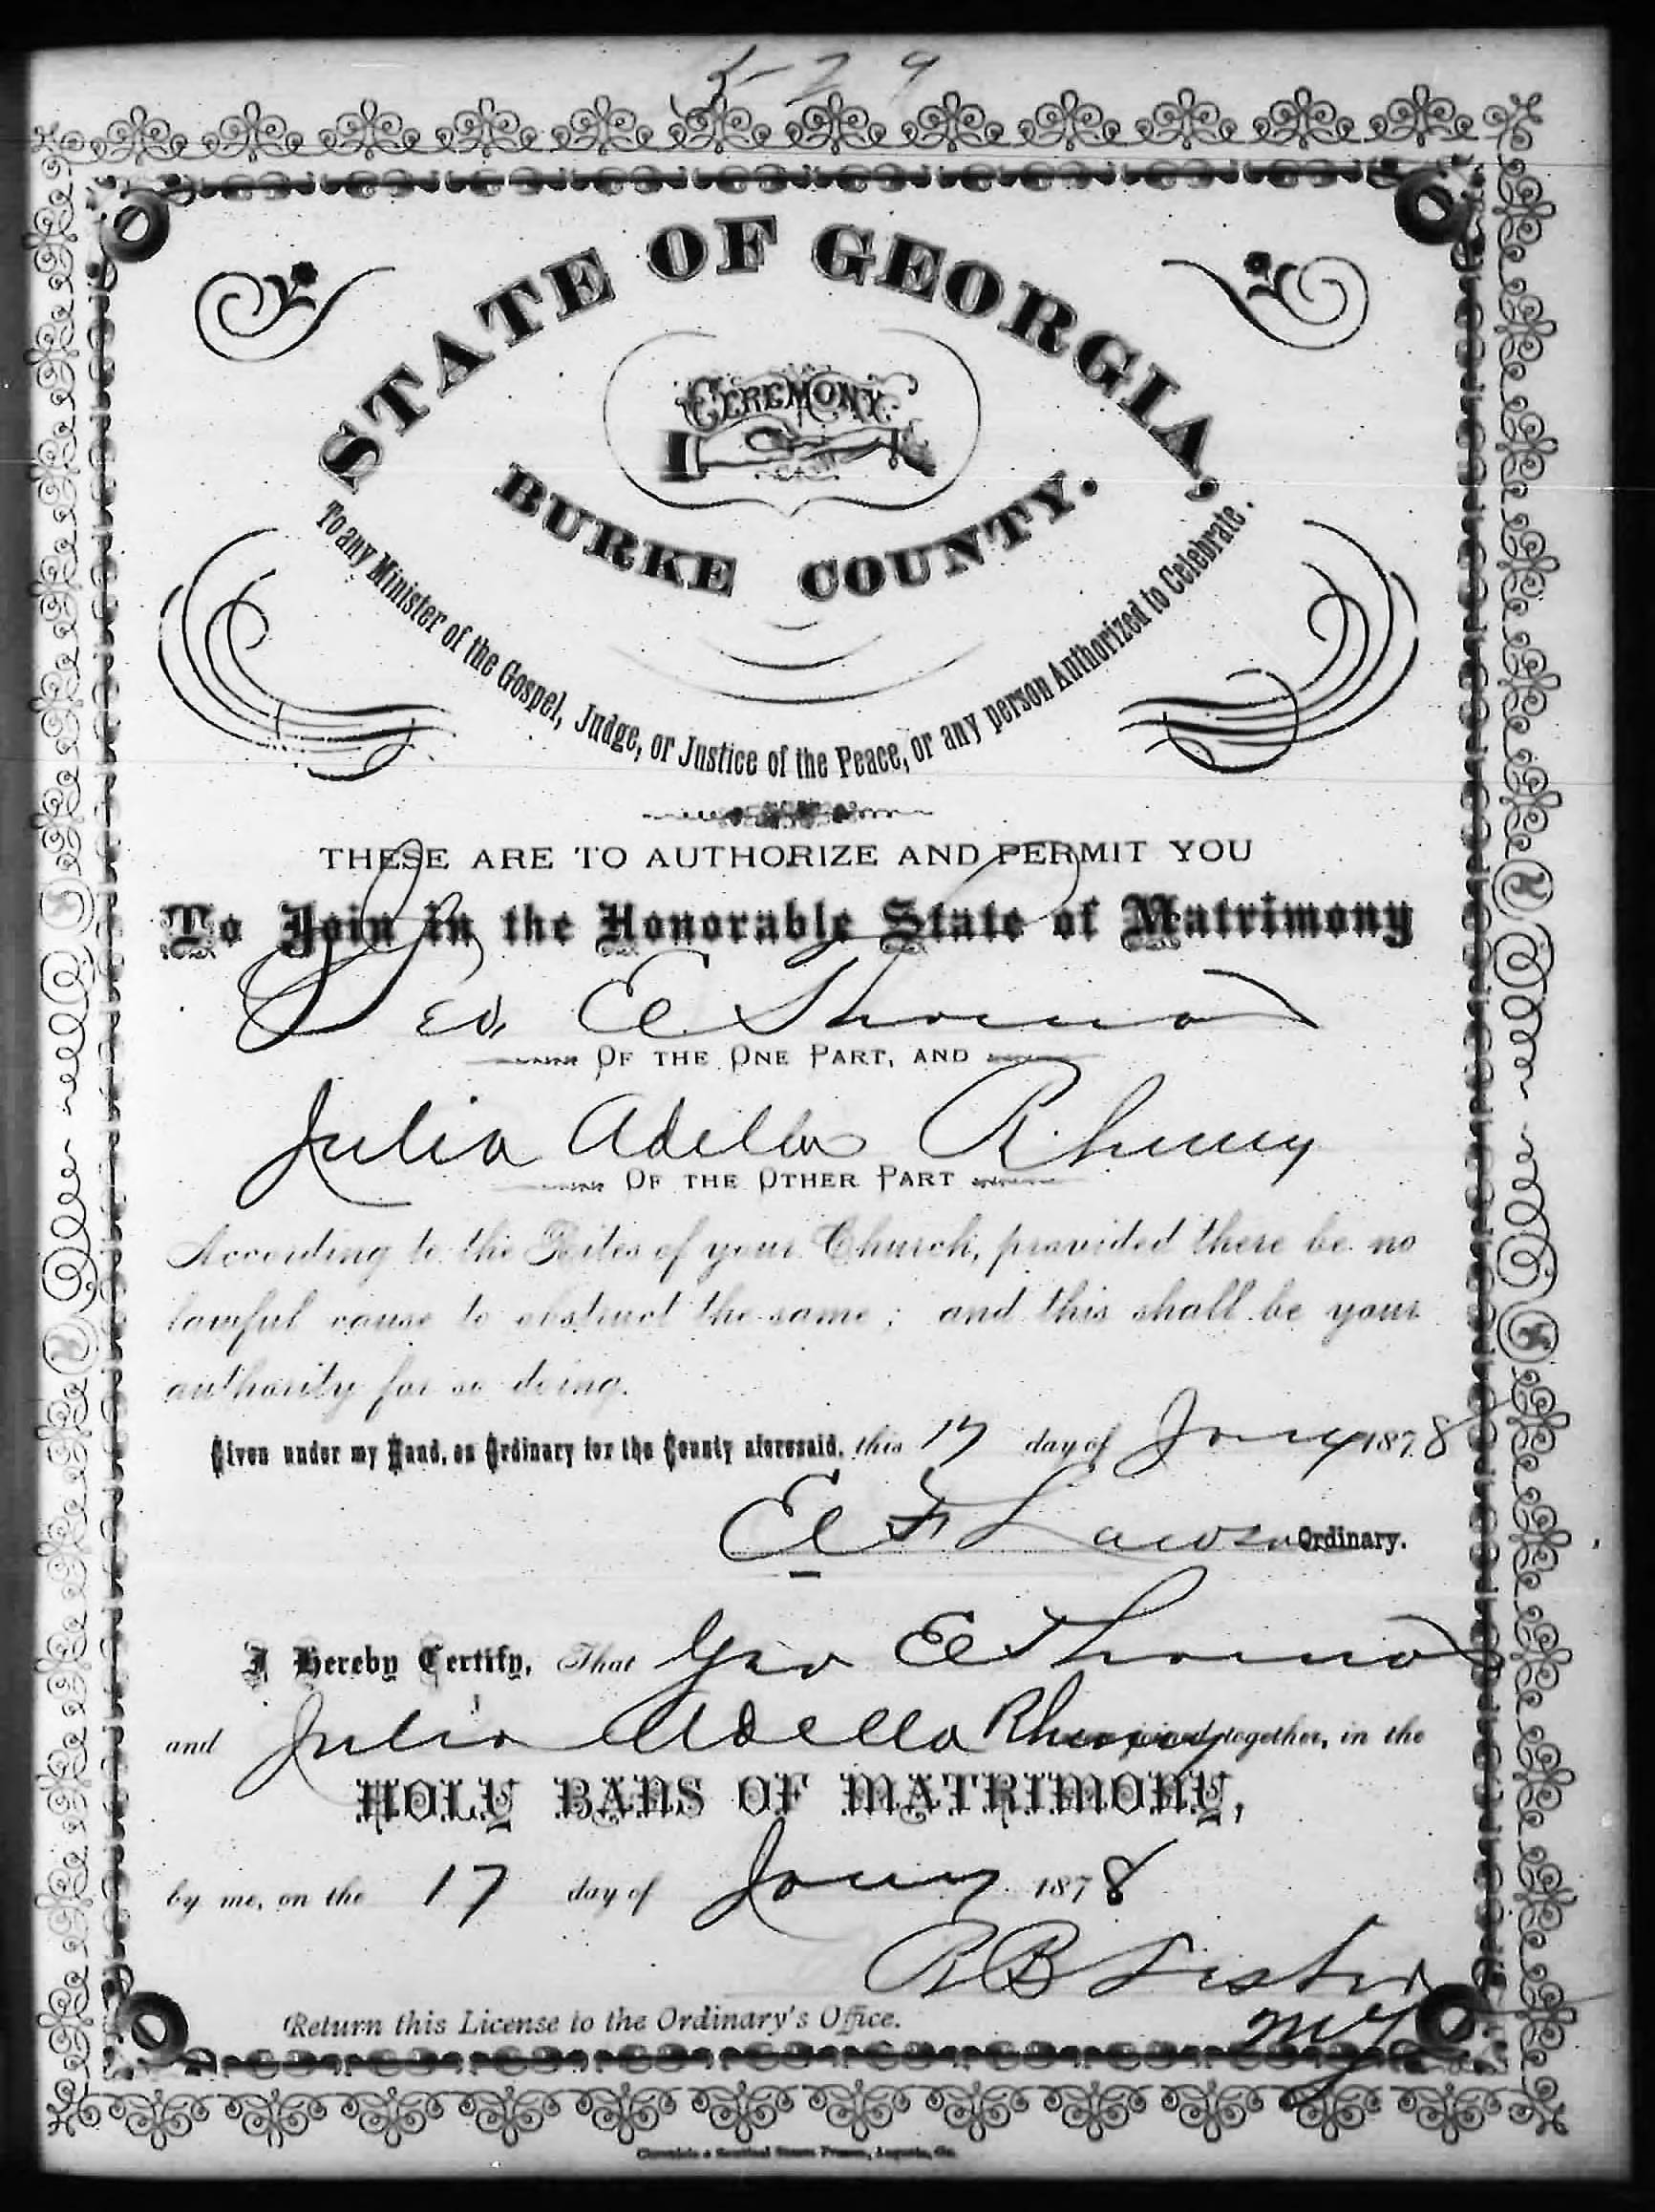 529
STATE OF GEORGIA,
CEREMONY
BURKE COUNTY.
To any Minister of the Gospel, Judge, or Justice of the Peace, or any person Authorized to Celebrate.
THESE ARE TO AUTHORIZE AND PERMIT YOU
To Join in the Honorable State of Matrimony
Geo E Thomas
OF THE ONE PART, AND
Julia Adella Rheney
OF THE OTHER PART
According to the Rites of your Church, provided there be no
lawful cause to obstruct the same; and this shall be your
authority for so doing.
Given under my Hand, as Ordinary for the County aforesaid, this 17 day of Jany 1878
E F Lawson Ordinary.
I Hereby Certify, That Geo E Thomas
and Julia Adella Rheney were joined together, in the
HOLY BANS OF MATRIMONY,
by me, on the 17 day of Jany 1878
R B
Return this License to the Ordinary's Office.
M G
Chronicle & Sentinel Steam Presses, Augusta, Ga.